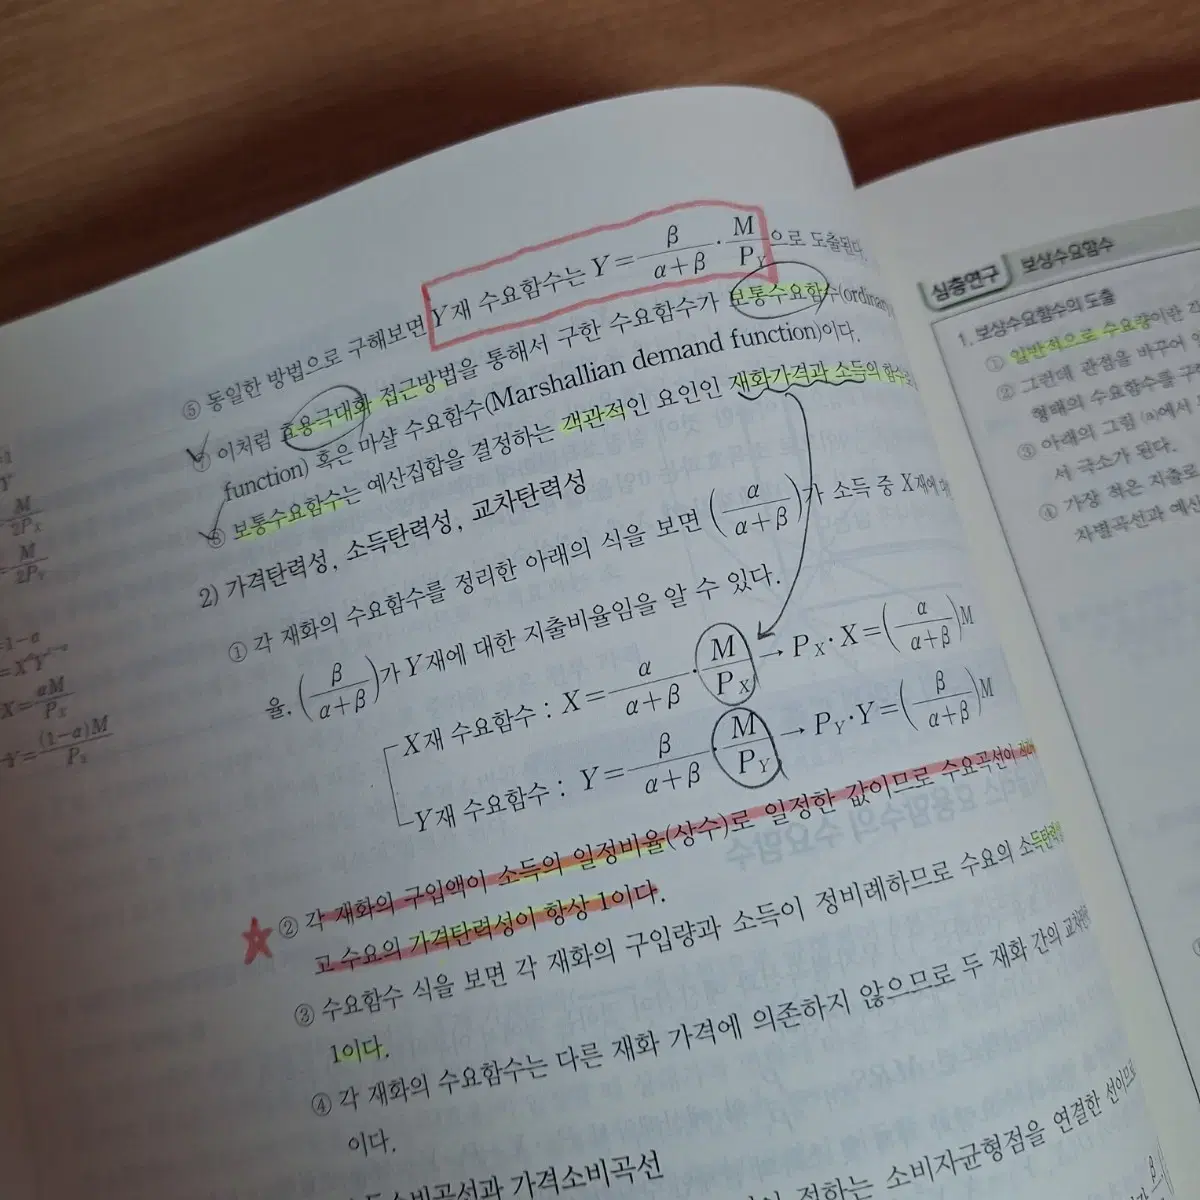 ⑤ 동일한 방법으로 구해보면 Y재 수요함수는 Y = β/(α+β) · M/P_Y 으로 도출된다.
이처럼 효용극대화 접근방법을 통해서 구한 수요함수가 보통수요함수(ordinary
function) 혹은 마샬 수요함수(Marshallian demand function)이다.
보통수요함수는 예산집합을 결정하는 객관적인 요인인 재화가격과 소득의 함수
2) 가격탄력성, 소득탄력성, 교차탄력성
① 각 재화의 수요함수를 정리한 아래의 식을 보면 (α/(α+β))가 소득 중 X재에
율, (β/(α+β))가 Y재에 대한 지출비율임을 알 수 있다.
X재 수요함수 : X = α/(α+β) · M/P_X → P_X · X = (α/(α+β))M
Y재 수요함수 : Y = β/(α+β) · M/P_Y → P_Y · Y = (β/(α+β))M
② 각 재화의 구입액이 소득의 일정비율(상수)로 일정한 값이므로 수요곡선이
고 수요의 가격탄력성이 항상 1이다.
③ 수요함수 식을 보면 각 재화의 구입량과 소득이 정비례하므로 수요의 소득탄력
1이다.
④ 각 재화의 수요함수는 다른 재화 가격에 의존하지 않으므로 두 재화 간의 교차
이다.
가격소비곡선
하는 소비자균형점을 연결한 선이므로
M/2P_X
M/2P
=1-α
X = αM/P_X
Y = (1-α)M/P
심층연구 보상수요함수
1. 보상수요함수의 도출
① 일반적으로 수요량이란
② 그런데 관점을 바꾸어
형태의 수요함수를
③ 아래의 그림 (a)에서
서 극소가 된다.
④ 가장 적은 지출로
차별곡선과